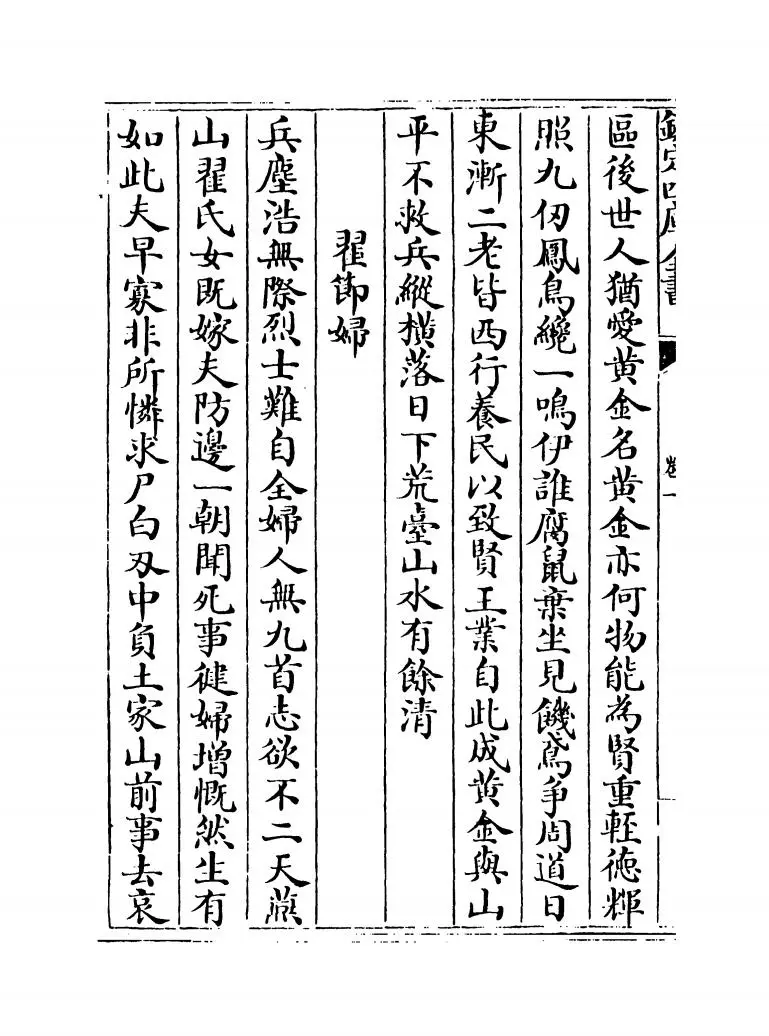 欽定四庫全書
卷一
區後世人猶愛黄金名黄金亦何物能為賢重輕徳輝
照九仞鳳鳥纔一鳴伊誰腐鼠棄坐見饑鳶爭周道日
東漸二老皆西行養民以致賢王業自此成黄金與山
平不救兵縱横落日下荒臺山水有餘清
翟節婦
兵塵浩無際烈士難自全婦人無九首志欲不二天燕
山翟氏女既嫁夫防邊一朝聞死事健婦増慨然生有
如此夫早寡非所憐求尸白刃中負土家山前事去哀